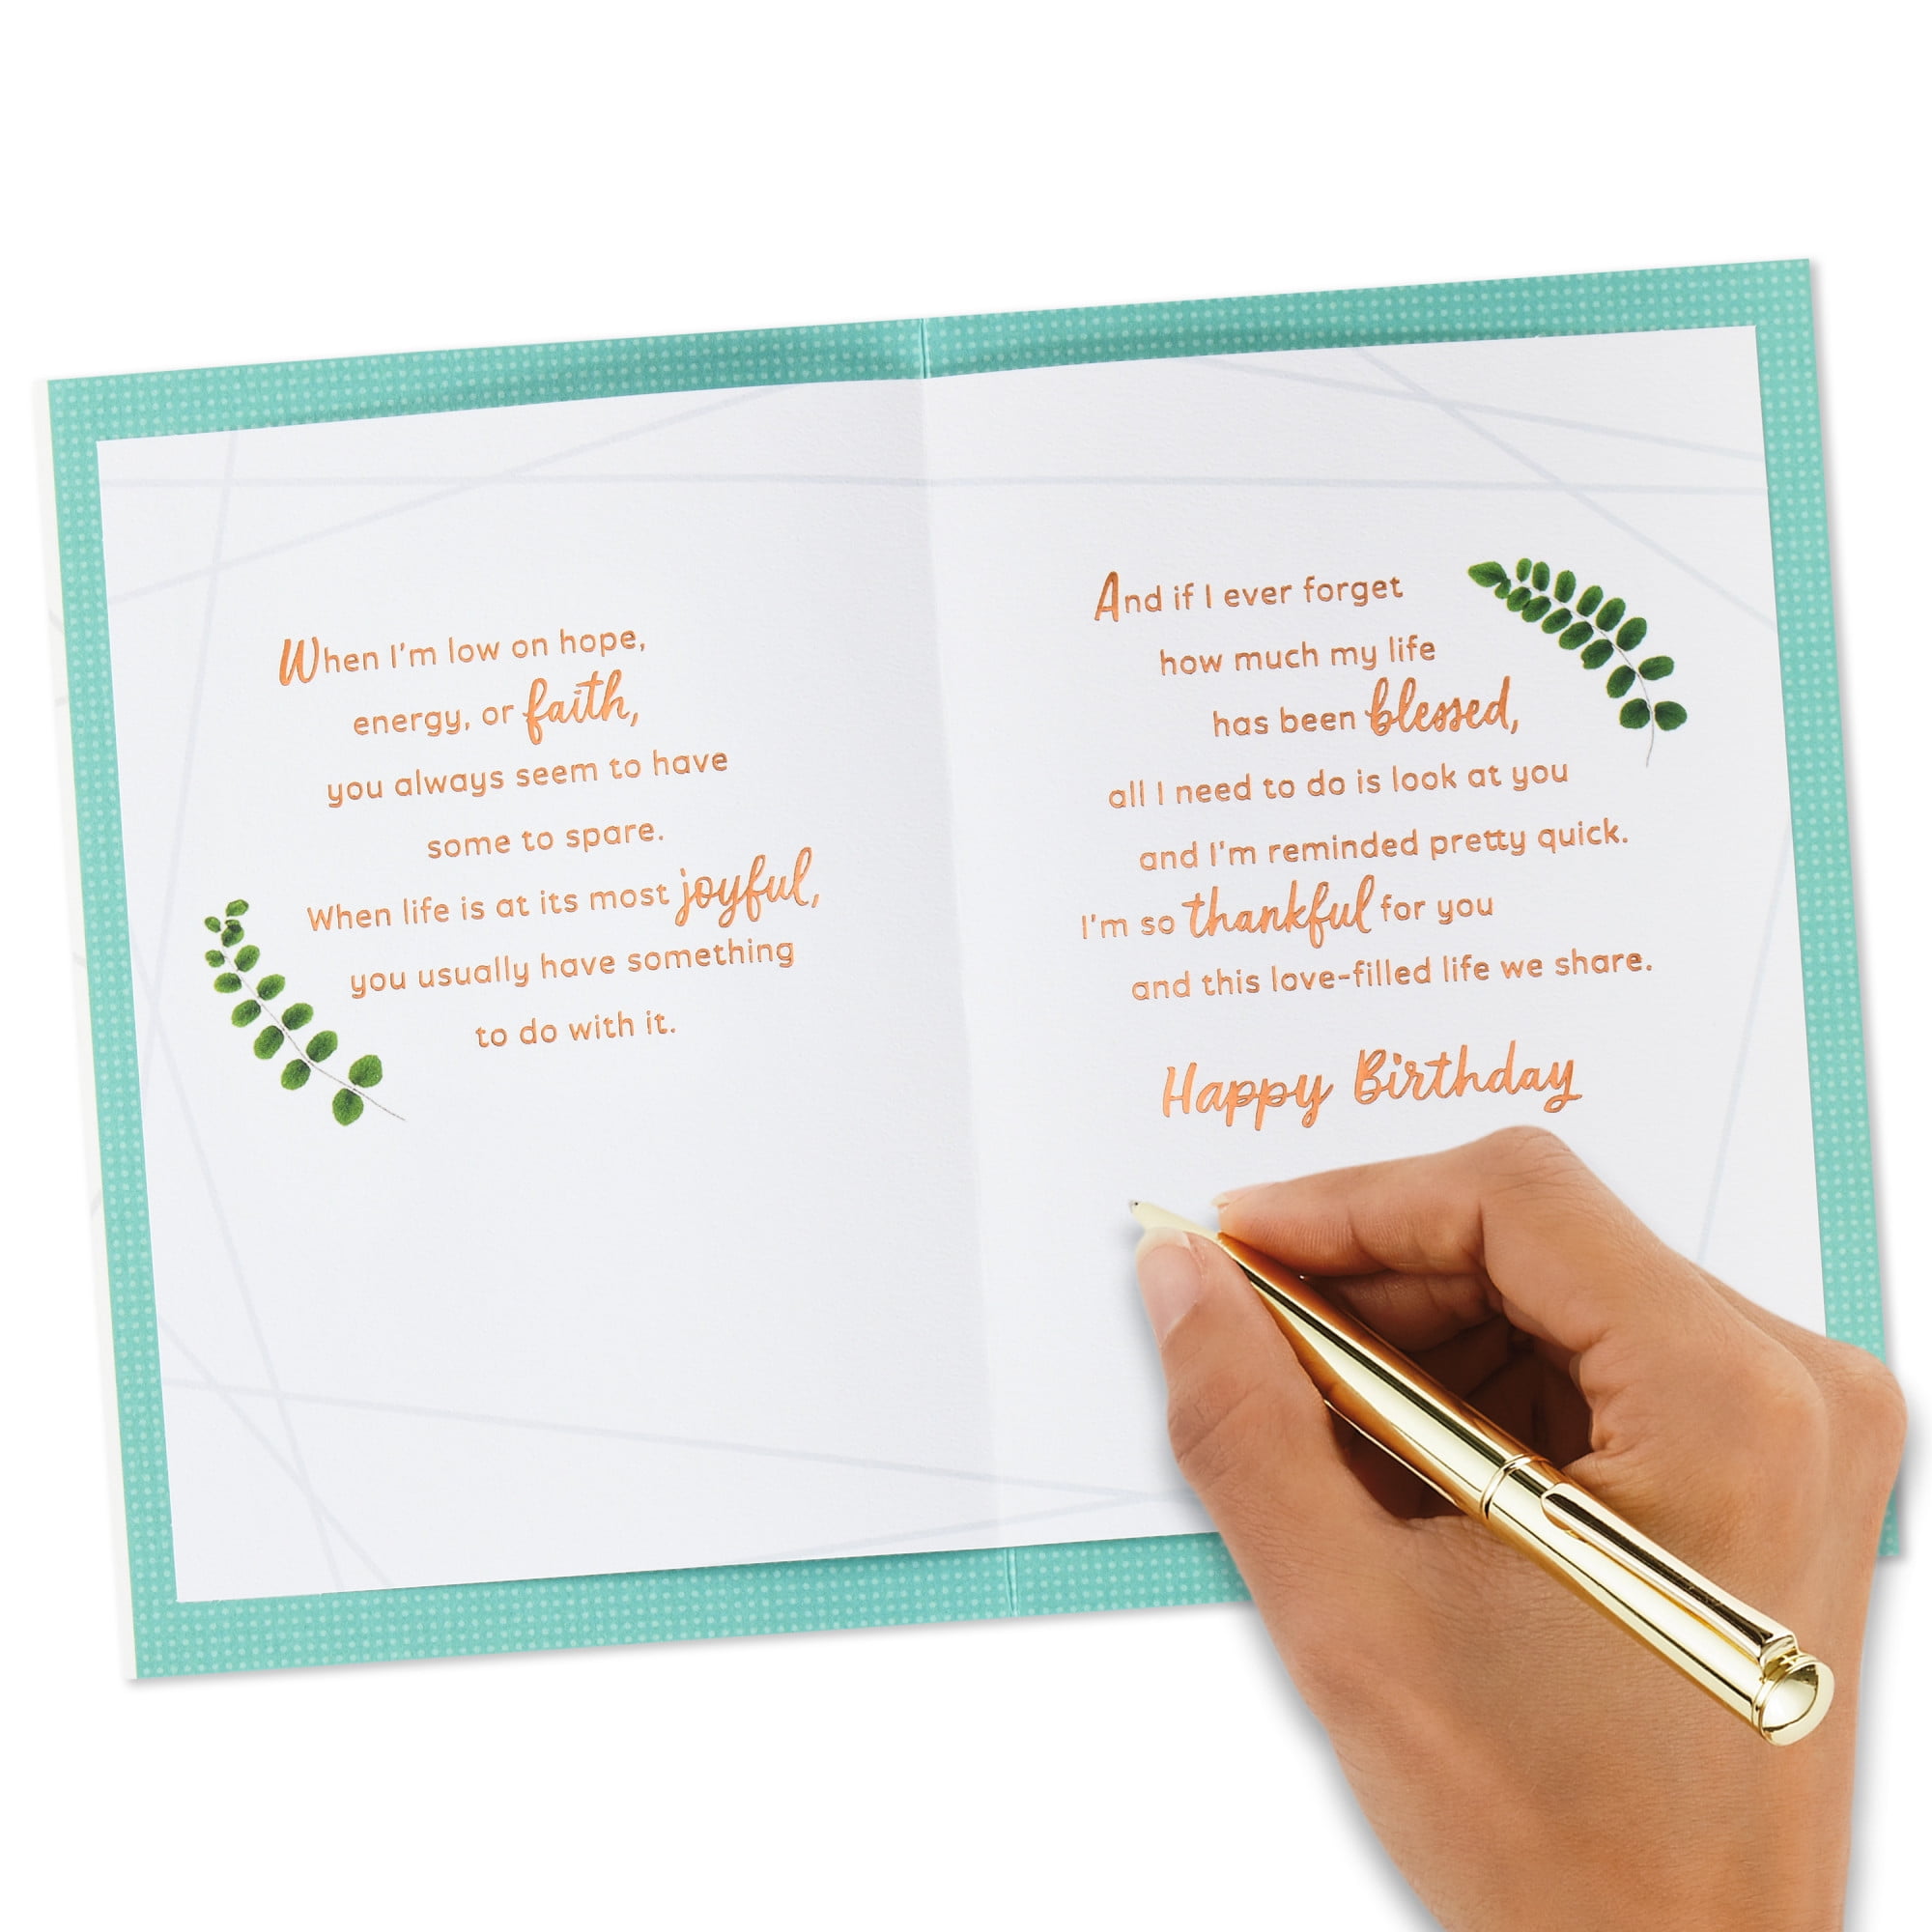 When I'm low on hope,
energy, or faith,
you always seem to have
some to spare.
When life is at its most joyful,
you usually have something
to do with it.
And if I ever forget
how much my life
has been blessed,
all I need to do is look at you
and I'm reminded pretty quick.
I'm so thankful for you
and this love-filled life we share.
Happy Birthday